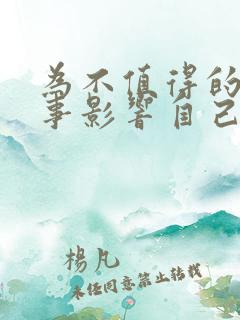 為不值得的
事影響自己
楊凡
未經同意禁止轉載